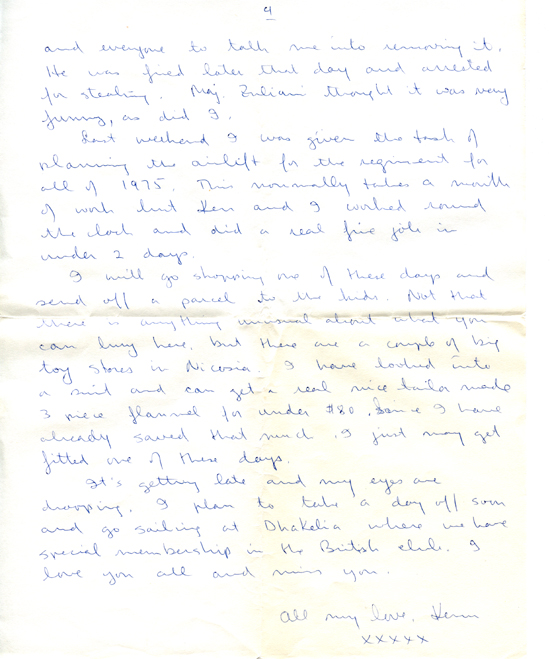 4
and everyone to talk me into removing it.
He was fired later that day and arrested
for stealing. Maj. Zuliani thought it was very
funny, as did I.
Last weekend I was given the task of
planning the airlift for the regiment for
all of 1975. This normally takes a month
of work but Ken and I worked round
the clock and did a real fine job in
under 2 days.
I will go shopping one of these days and
send off a parcel to the kids. Not that
there is anything unusual about what you
can buy here, but there are a couple of big
toy stores in Nicosia. I have looked into
a suit and can get a real nice tailor made
3 piece flannel for under $80. Since I have
already saved that much, I just may get
fitted one of these days.
It's getting late and my eyes are
drooping. I plan to take a day off soon
and go sailing at Dhakelia where we have
special membership in the British club. I
love you all and miss you.
All my love, Kenn
xxxxx